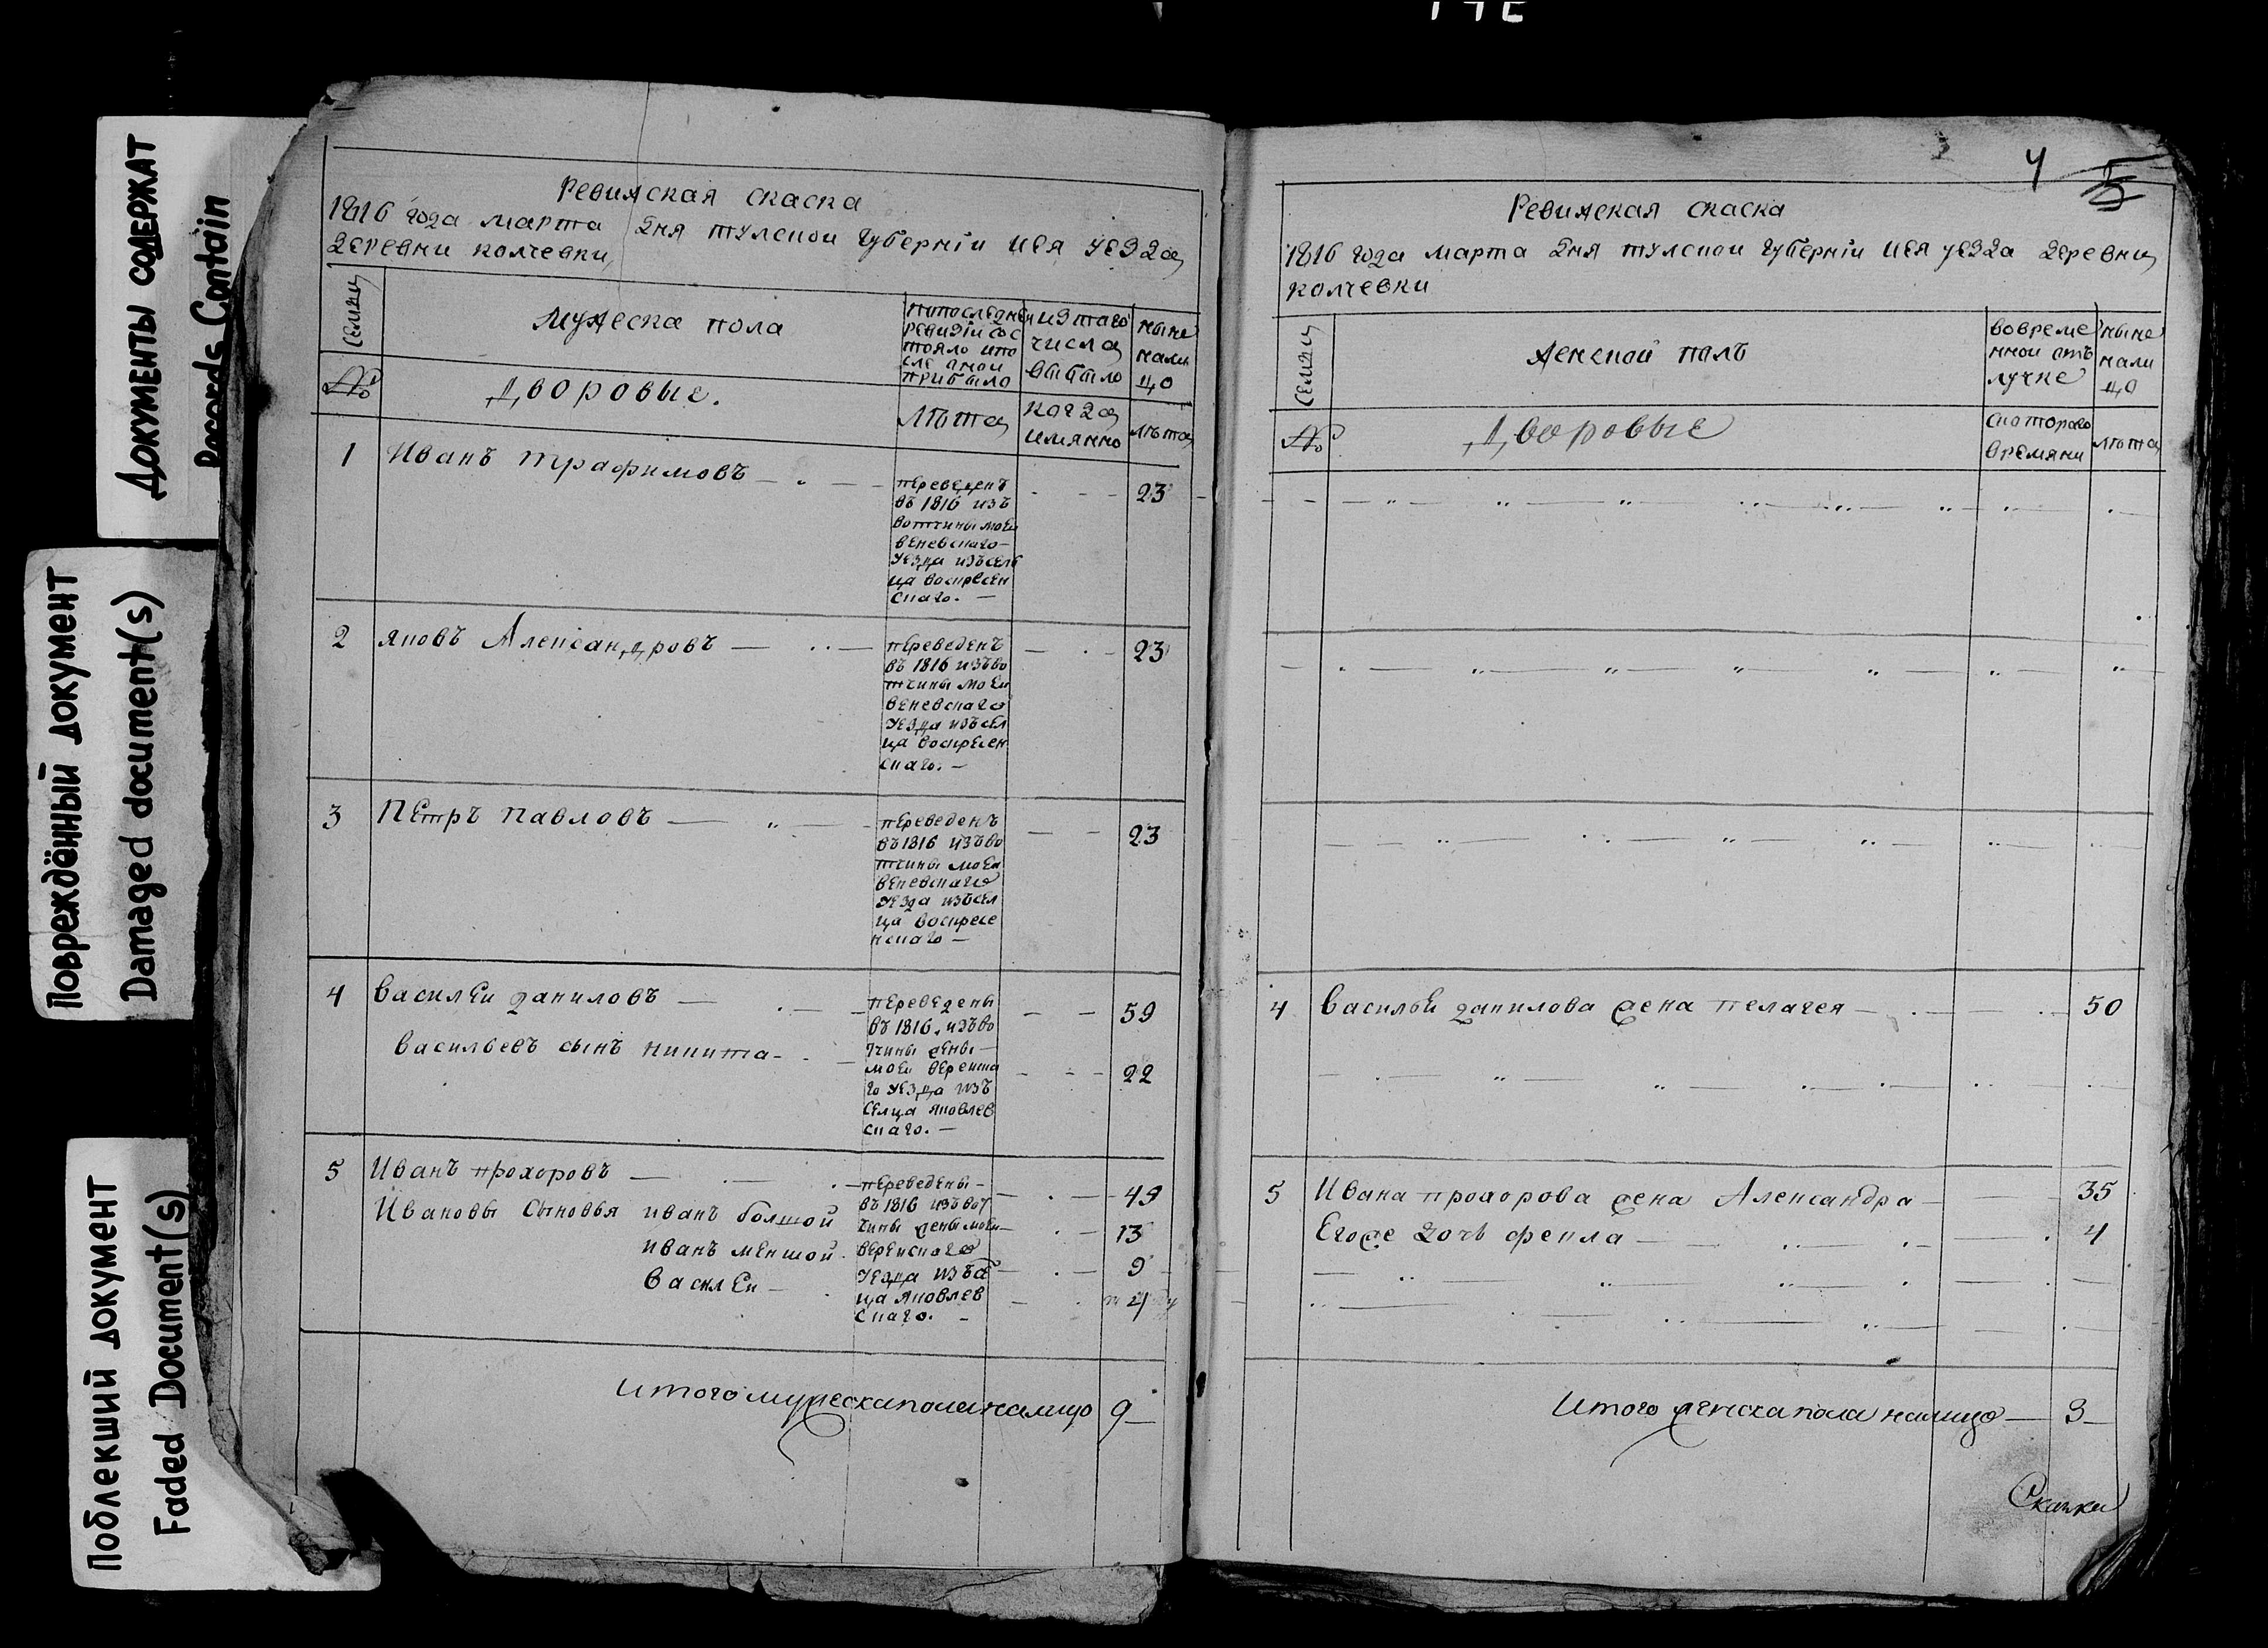 Документы содержат
Records Contain
Повреждённый документ
Damaged document(s)
Поблекший документ
Faded Document(s)
Ревижская скаска
1816 года марта дня тулской губернiи иея уезда
деревни колчевки
семьи
мужеска пола
попоследней
ревизiи сос
тояло ипо
сле оной
прибыло
изтаго
числа
выбыло
ныне
нали
цо
№
Дворовые.
лѣта
когда
имянно
лѣта
1 Иванъ трафимовъ 23
переведенъ
въ 1816 изъ
вотчины моеи
веневскаго
уезда изъсель
ца воскресен
скаго.
2 яковъ Александровъ 23
переведенъ
въ 1816 изъво
тчины моеи
веневскаго
уезда изъсел
ца воскресен
скаго.
3 Петръ павловъ 23
переведенъ
въ 1816 изъво
тчины моеи
веневскаго
уезда изъсел
ца воскресе
нскаго
4 василеи даниловъ 59
васильевъ сынъ никита 22
переведены
въ 1816. изъво
тчины жены
моеи верейска
го уезда изъ
селца яковлев
скаго.
5 Иванъ прохоровъ 49
Ивановы сыновья иванъ болшой 13
иванъ меншой 9
василеи 4
переведены
въ 1816 изъвот
чины жены моеи
верейскаго
уезда изъсе
ца яковлев
скаго.
Итого мужеска пола налицо 9
4
5
Ревижская скаска
1816 года марта дня тулской губернiи иея уезда деревни
колчевки
семьи
женской полъ
вовреме
нной отъ
лучке
ныне
нали
цо
№
Дворовые
скоторого
времяни
лѣта
4 васильи данилова жена пелагея 50
5 Ивана прохорова жена Александра 35
Егоже дочь фекла 4
Итого женска пола налицо 3
Сказки